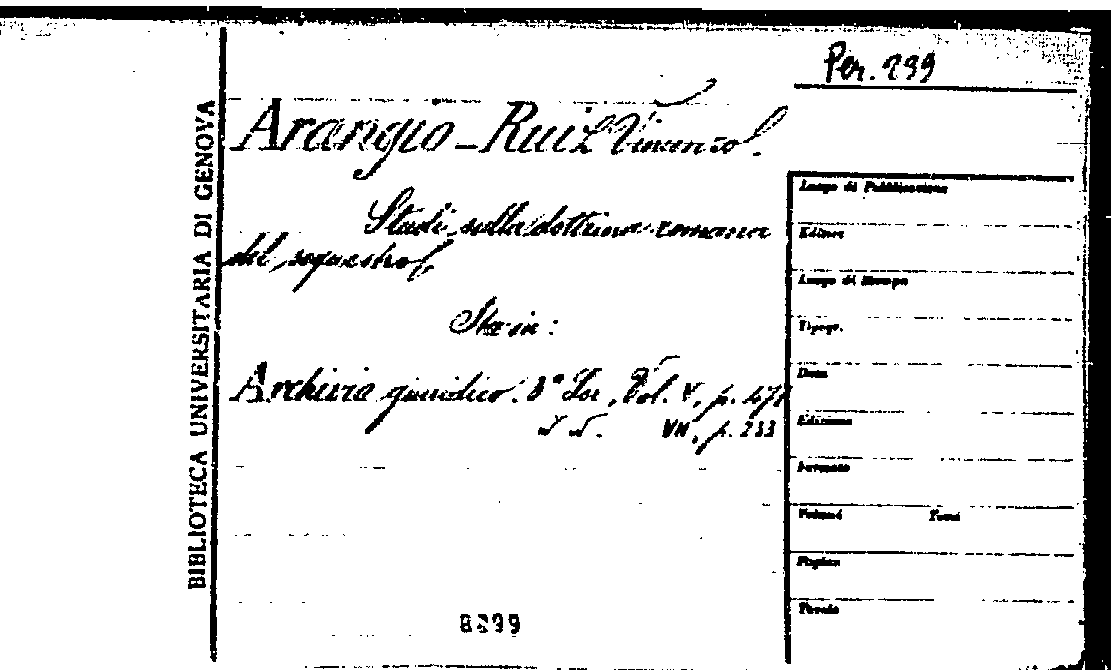 Per. 299
BIBLIOTECA UNIVERSITARIA DI GENOVA
Arangio-Ruiz Vincenzo.
Studi sulla dottrina romana
del sequestro.
Sta in:
Archivio giuridico. 3ª Ser, Vol. V, p.
VII, p. 233
Luogo di Pubblicazione
Editore
Luogo di Stampa
Tipogr.
Data
Edizione
Formato
Volumi Tomi
Pagine
Tavole
8399